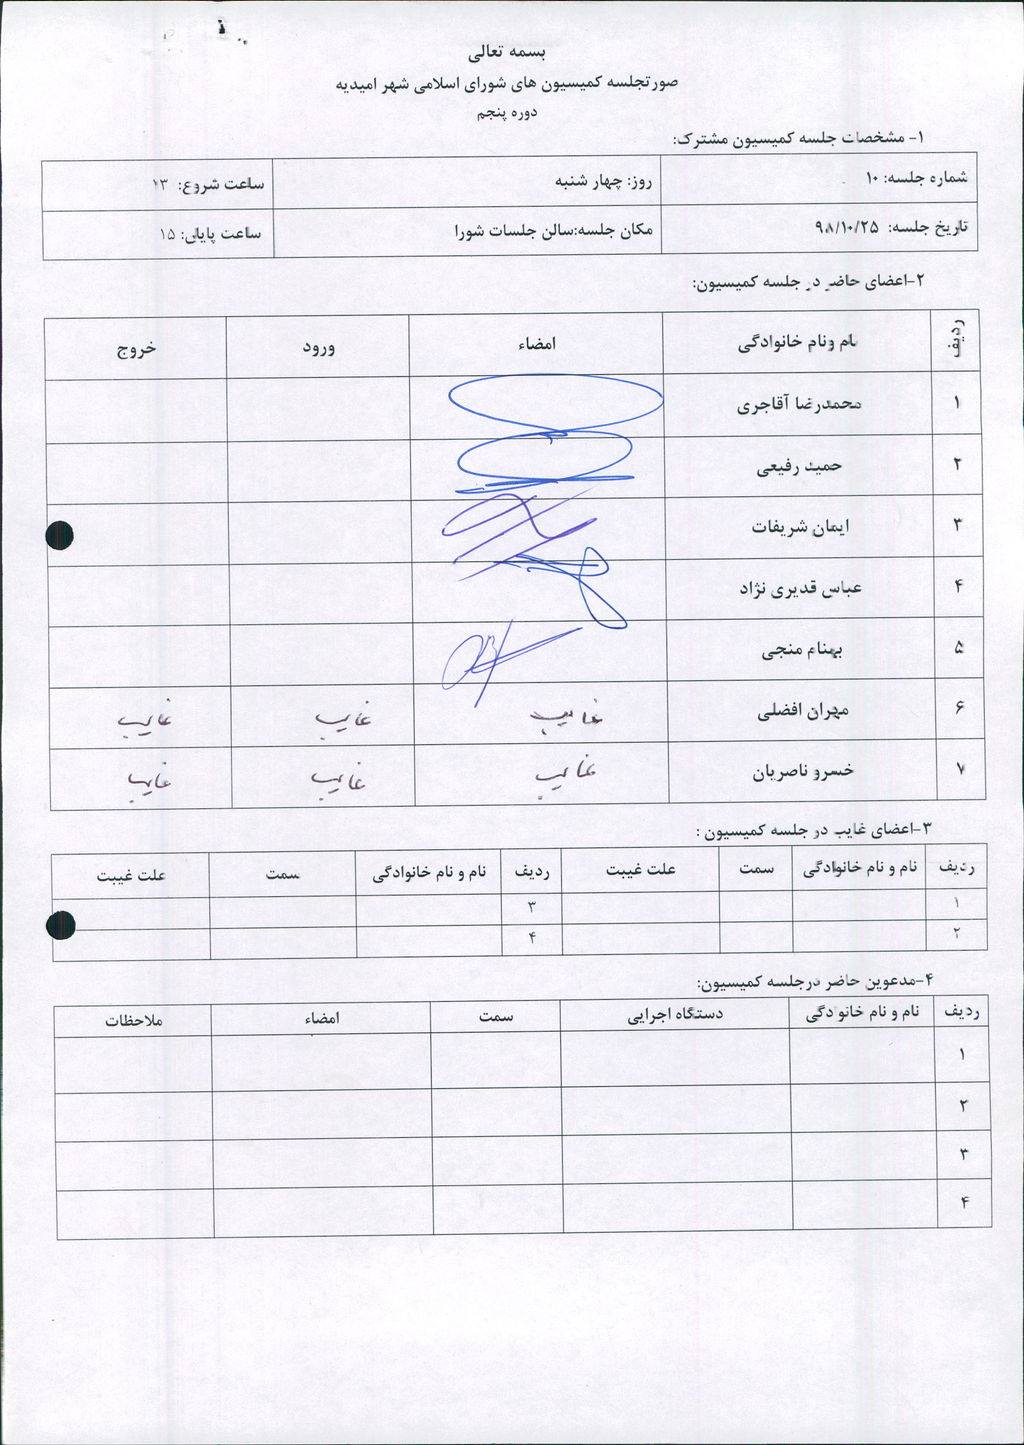 بسمه تعالی
صورتجلسه کمیسیون های شورای اسلامی شهر امیدیه
دوره پنجم
۱- مشخصات جلسه کمیسیون مشترک:
شماره جلسه: ۱۰ روز: چهار شنبه ساعت شروع: ۱۳
تاریخ جلسه: ۹۸/۱۰/۲۵ مکان جلسه:سالن جلسات شورا ساعت پایانی: ۱۵
۲-اعضای حاضر در جلسه کمیسیون:
ردیف نام ونام خانوادگی امضاء ورود خروج
۱ محمدرضا آقاجری
۲ حمید رفیعی
۳ ایمان شریفات
۴ عباس قدیری نژاد
۵ بهنام منجی
۶ مهران افضلی غایب غایب غایب
۷ خسرو ناصریان غایب غایب غایب
۳-اعضای غایب در جلسه کمیسیون :
ردیف نام و نام خانوادگی سمت علت غیبت ردیف نام و نام خانوادگی سمت علت غیبت
۱ ۳
۲ ۴
۴-مدعوین حاضر درجلسه کمیسیون:
ردیف نام و نام خانوادگی دستگاه اجرایی سمت امضاء ملاحظات
۱
۲
۳
۴